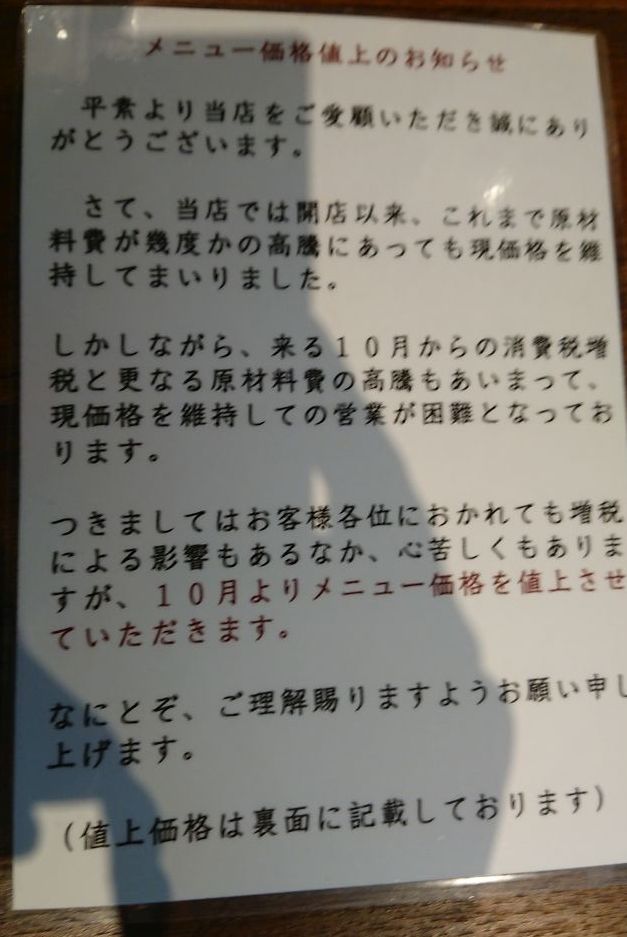 メニュー価格値上のお知らせ
平素より当店をご愛願いただき誠にあり
がとうございます。
さて、当店では開店以来、これまで原材
料費が幾度かの高騰にあっても現価格を維
持してまいりました。
しかしながら、来る１０月からの消費税増
税と更なる原材料費の高騰もあいまって、
現価格を維持しての営業が困難となってお
ります。
つきましてはお客様各位におかれても増税
による影響もあるなか、心苦しくもありま
すが、１０月よりメニュー価格を値上させ
ていただきます。
なにとぞ、ご理解賜りますようお願い申し
上げます。
（値上価格は裏面に記載しております）